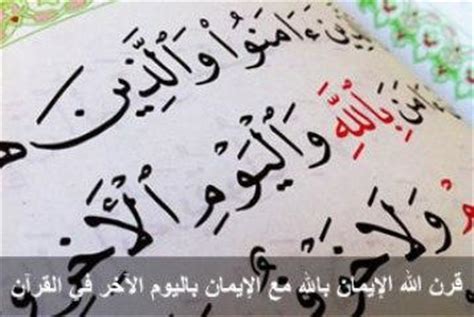 ءَامَنُوا۟ وَٱلَّذِينَ
ءَامَنَ بِٱللَّهِ وَٱلْيَوْمِ ٱلْأَخِرِ
وَلَا خَوْفٌ
قرن الله الإيمان بالله مع الإيمان باليوم الآخر في القرآن